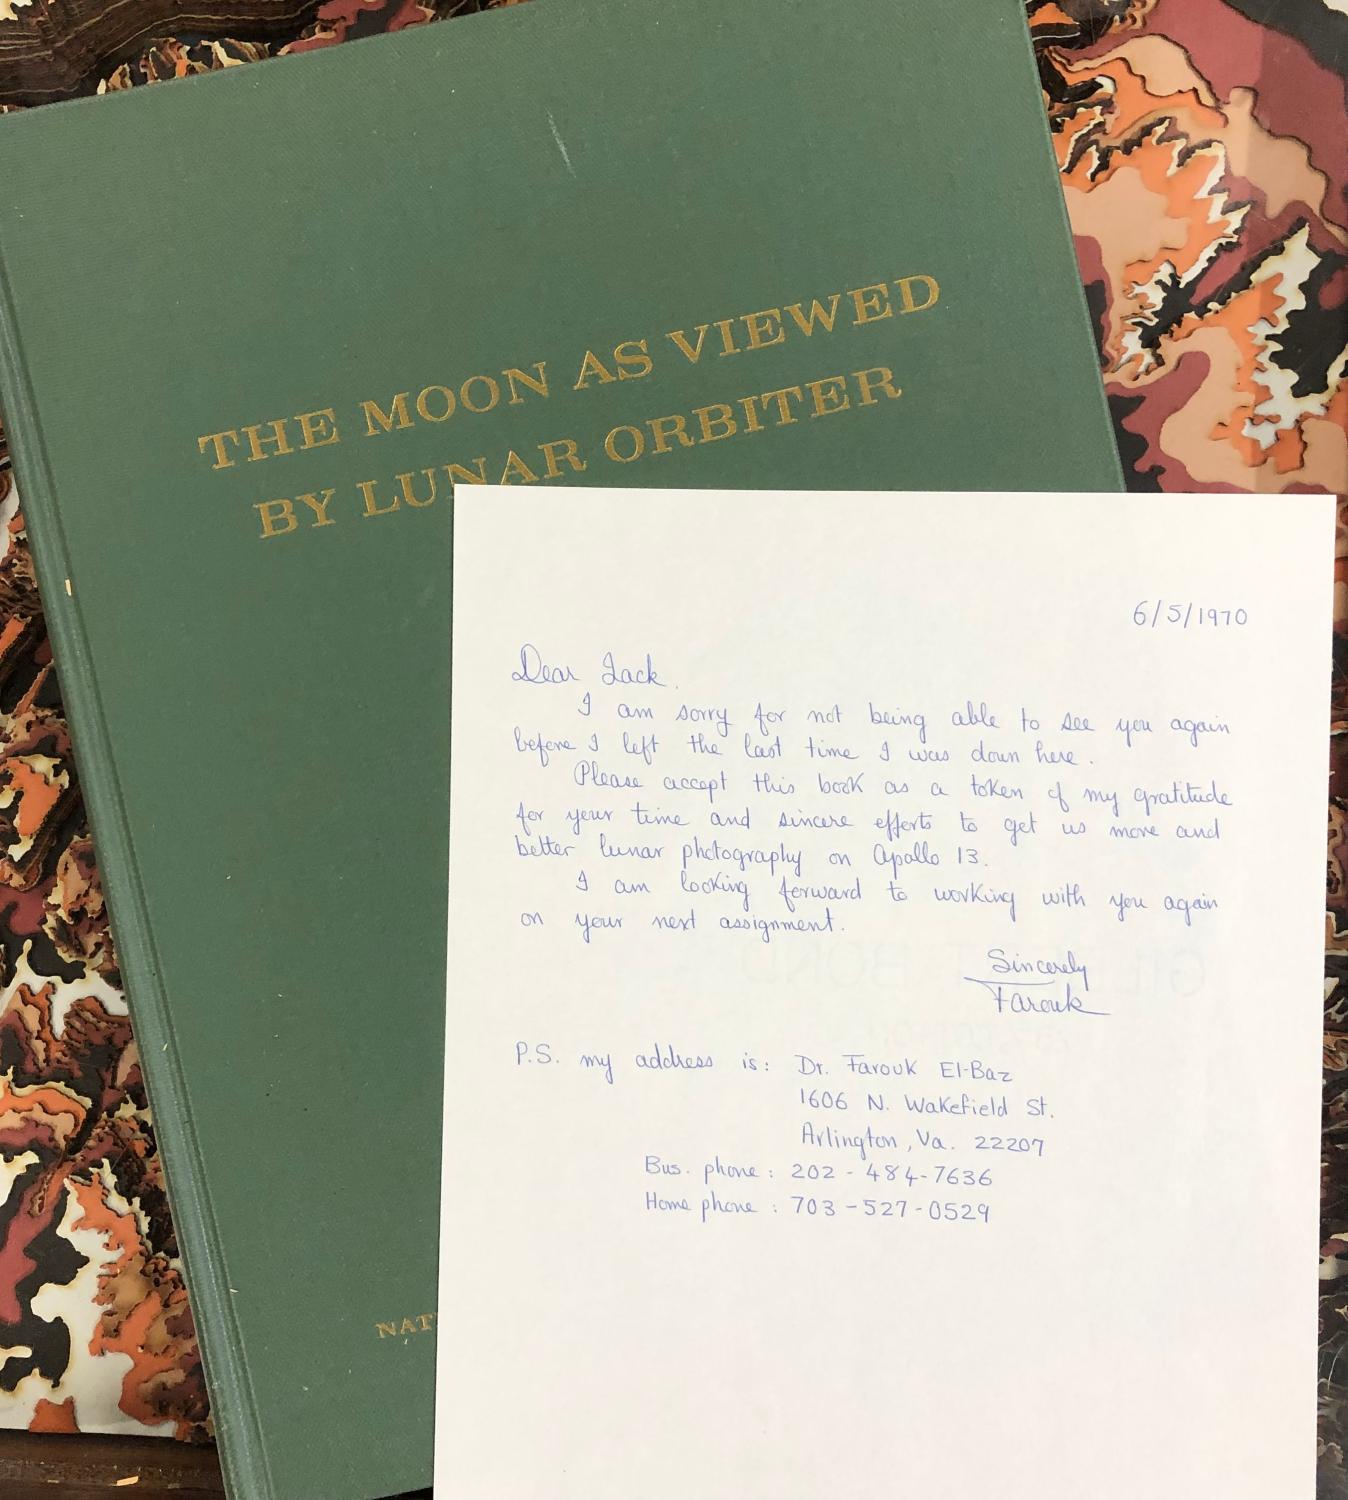 THE MOON AS VIEWED
BY LUNAR ORBITER
NAT
6/5/1970
Dear Jack.
I am sorry for not being able to see you again
before I left the last time I was down here.
Please accept this book as a token of my gratitude
for your time and sincere efforts to get us more and
better lunar photography on Apollo 13.
I am looking forward to working with you again
on your next assignment.
Sincerely
Farouk
P.S. my address is: Dr. Farouk El-Baz
1606 N. Wakefield St.
Arlington, Va. 22207
Bus. phone: 202-484-7636
Home phone: 703-527-0529